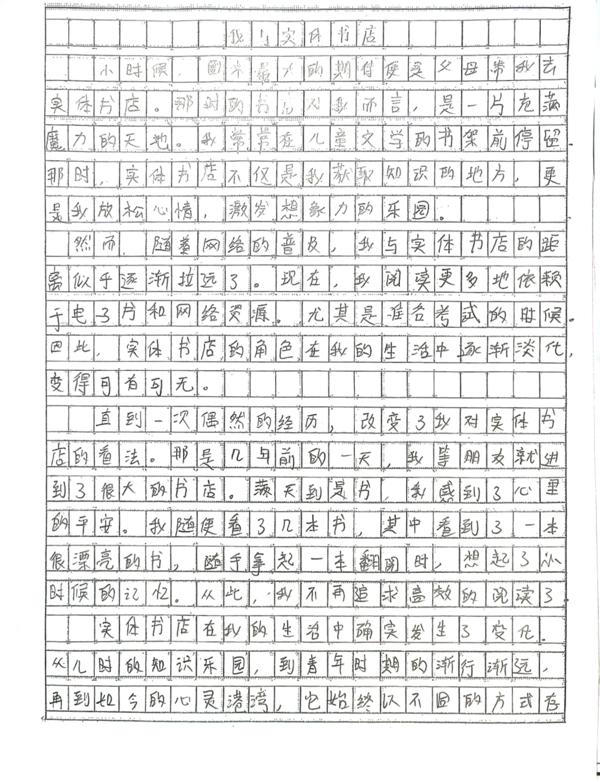 我与实体书店
小时候，最大的期待便是父母带我去
实体书店。那时的书店对我而言，是一片充满
魔力的天地。我常常在儿童文学的书架前停留。
那时，实体书店不仅是我获取知识的地方，更
是我放松心情，激发想象力的乐园。
然而，随着网络的普及，我与实体书店的距
离似乎逐渐拉远了。现在，我阅读更多地依赖
于电子书和网络资源。尤其是准备考试的时候。
因此，实体书店的角色在我的生活中逐渐淡化，
变得可有可无。
直到一次偶然的经历，改变了我对实体书
店的看法。那是几年前的一天，我等朋友就进
到了很大的书店。满天到是书，我感到了心里
的平安。我随便看了几本书，其中看到了一本
很漂亮的书，随手拿起一本翻开时，想起了小
时候的记忆。从此，我不再追求高效的阅读了。
实体书店在我的生活中确实发生了变化。
从儿时的知识乐园，到青年时期的渐行渐远，
再到如今的心灵港湾，它始终以不同的方式存